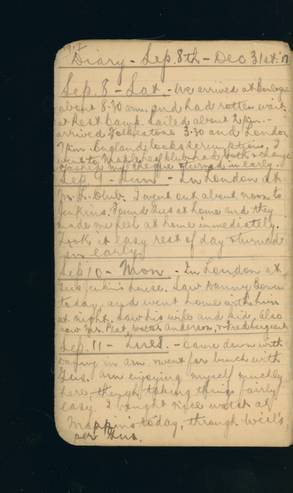 Diary - Sep. 8th - Dec 31st. 17
Sep. 8 - Sat. - We arrived at Boulogne
about 8.30 am. and had rotten wait
at Rest Camp. Sailed about 2 pm. -
arrived Folkestone 3.30 and London
7 pm. England looks scrumptious, I
went to
cheque & turned in early.
Sep. 9 - Sun. - In London at
Club. I went out about noon to
Jenkins. Found Gus at home and they
made me feel at home immediately.
Took it easy rest of day & turned
in early.
Sep. 10 - Mon. - In London at
Gus Jenkin's house. Saw Danny down
today, and went home with him
at night. Saw his wife and kids, also
saw Mrs. Anderson,
Sep. 11 - Tues. - Came down with
Danny in am. went for lunch with
Gus. Am enjoying myself quietly
here, though taking things fairly
easy. I bought nice watch at
Mappins today, through
per Gus.